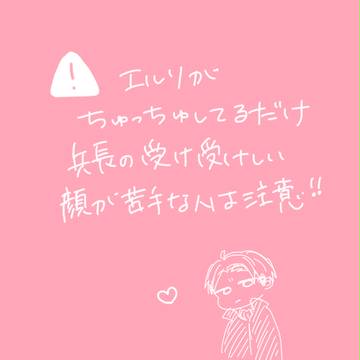 !
エルリが
ちゅっちゅしてるだけ
兵長の受け受けしい
顔が苦手な人は注意!!